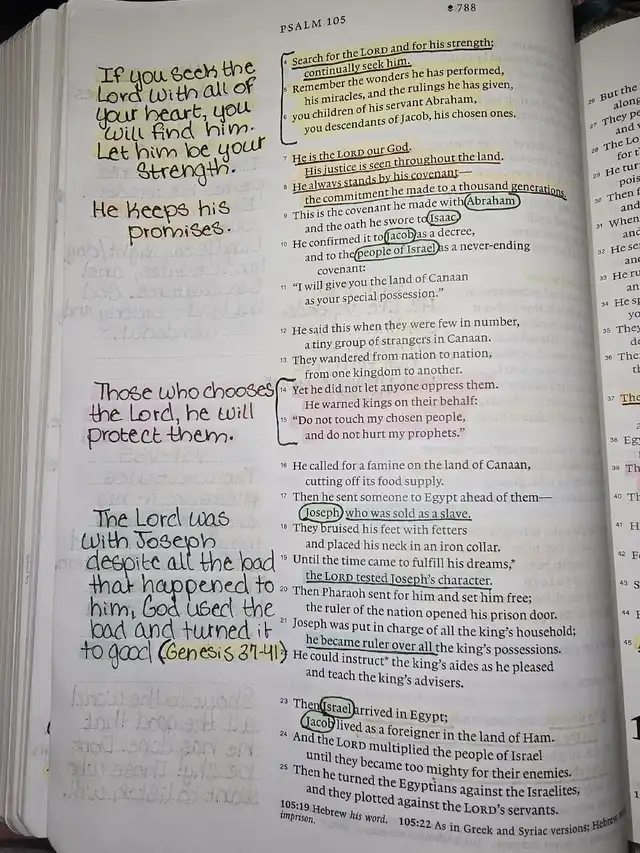 PSALM 105
788
If you seek the
Lord with all of
your heart, you
will find him.
Let him be your
strength.
He keeps his
promises.
Those who chooses
the Lord, he will
protect them.
The Lord was
with Joseph
despite all the bad
that happened to
him, God used the
bad and turned it
to good (Genesis 37-41)
4 Search for the LORD and for his strength;
continually seek him.
5 Remember the wonders he has performed,
his miracles, and the rulings he has given,
6 you children of his servant Abraham,
you descendants of Jacob, his chosen ones.
7 He is the LORD our God.
His justice is seen throughout the land.
8 He always stands by his covenant—
the commitment he made to a thousand generations.
9 This is the covenant he made with Abraham
and the oath he swore to Isaac.
10 He confirmed it to Jacob as a decree,
and to the people of Israel as a never-ending
covenant:
11 “I will give you the land of Canaan
as your special possession.”
12 He said this when they were few in number,
a tiny group of strangers in Canaan.
13 They wandered from nation to nation,
from one kingdom to another.
14 Yet he did not let anyone oppress them.
He warned kings on their behalf:
15 “Do not touch my chosen people,
and do not hurt my prophets.”
16 He called for a famine on the land of Canaan,
cutting off its food supply.
17 Then he sent someone to Egypt ahead of them—
Joseph, who was sold as a slave.
18 They bruised his feet with fetters
and placed his neck in an iron collar.
19 Until the time came to fulfill his dreams,*
the LORD tested Joseph’s character.
20 Then Pharaoh sent for him and set him free;
the ruler of the nation opened his prison door.
21 Joseph was put in charge of all the king’s household;
he became ruler over all the king’s possessions.
22 He could instruct* the king’s aides as he pleased
and teach the king’s advisers.
23 Then Israel arrived in Egypt;
Jacob lived as a foreigner in the land of Ham.
24 And the LORD multiplied the people of Israel
until they became too mighty for their enemies.
25 Then he turned the Egyptians against the Israelites,
and they plotted against the LORD’s servants.
105:19 Hebrew his word. 105:22 As in Greek and Syriac versions; Hebrew
imprison.
26 But the
27 They pe
and
28 The Lo
for t
29 He tur
pois
30 Then f
and
31 When
and
32 He se
and
33 He ru
an
34 He sp
yo
35 They
de
36 The
th
37 The
a
38 Egy
39 Th
40 Th
41 H
42 F
43 S
44
45